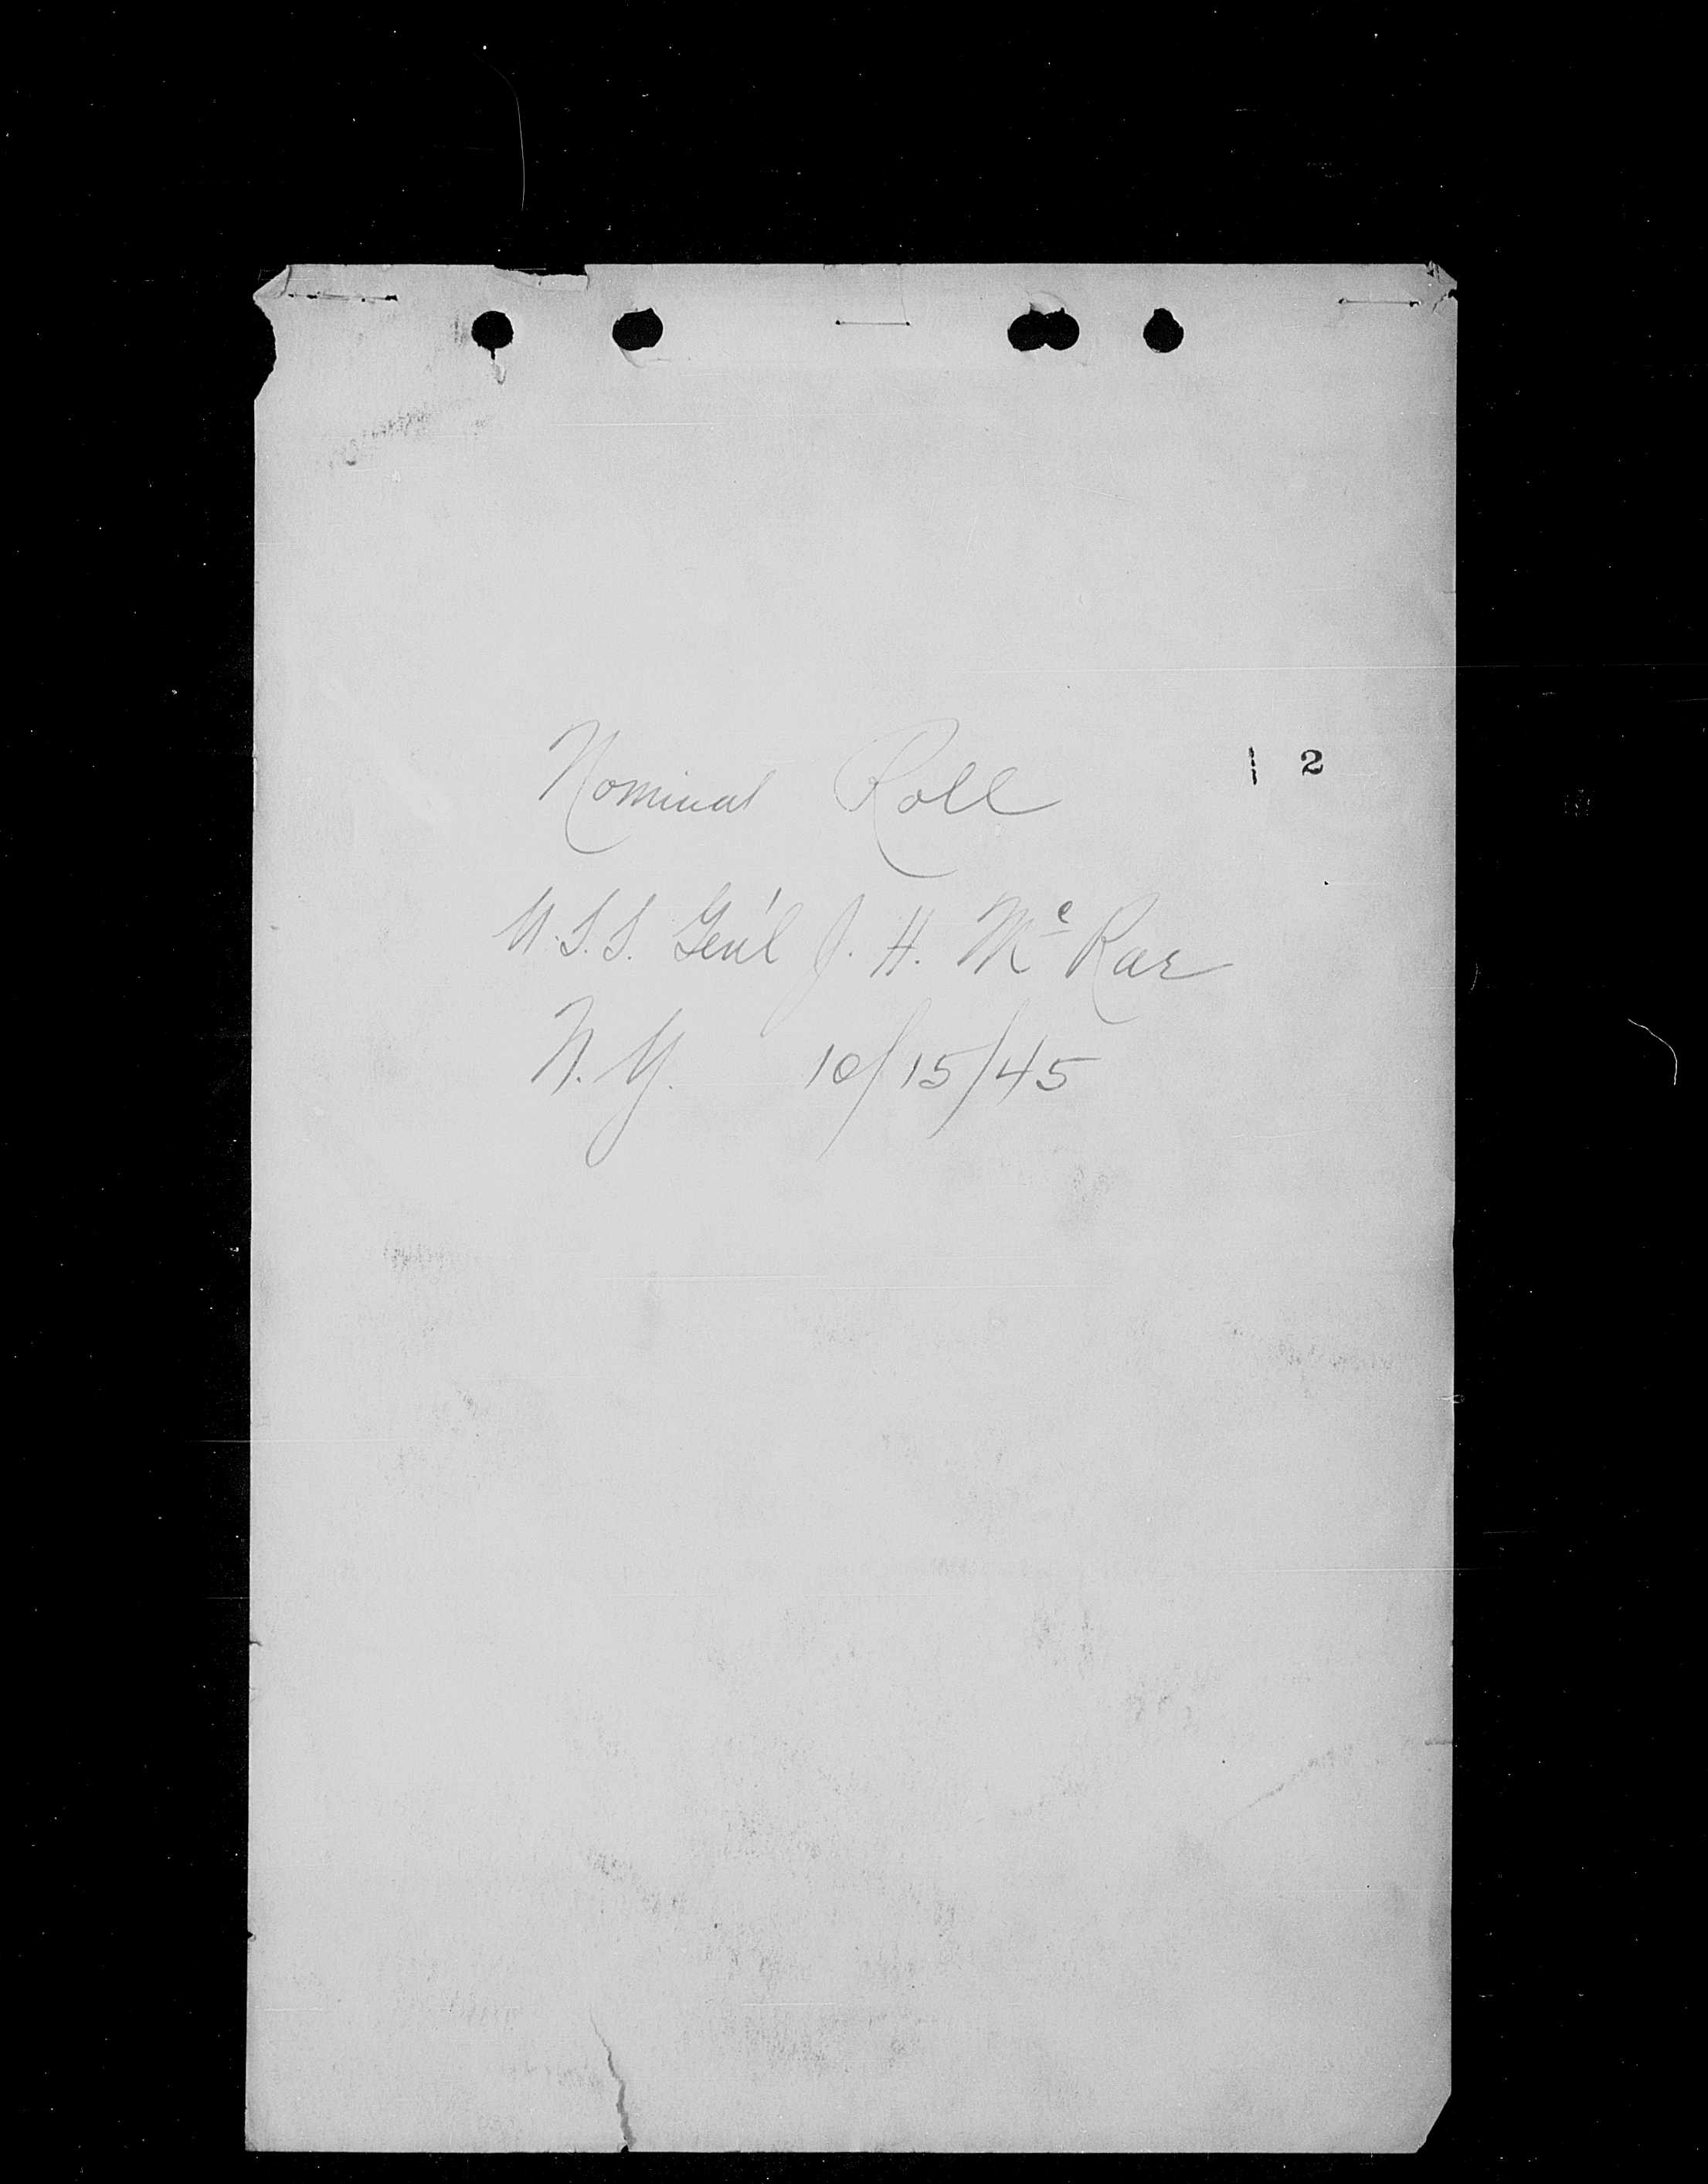 Nominal Roll
1 2
U.S.S. Gen'l J. H. Mc Rae
N.Y. 10/15/45